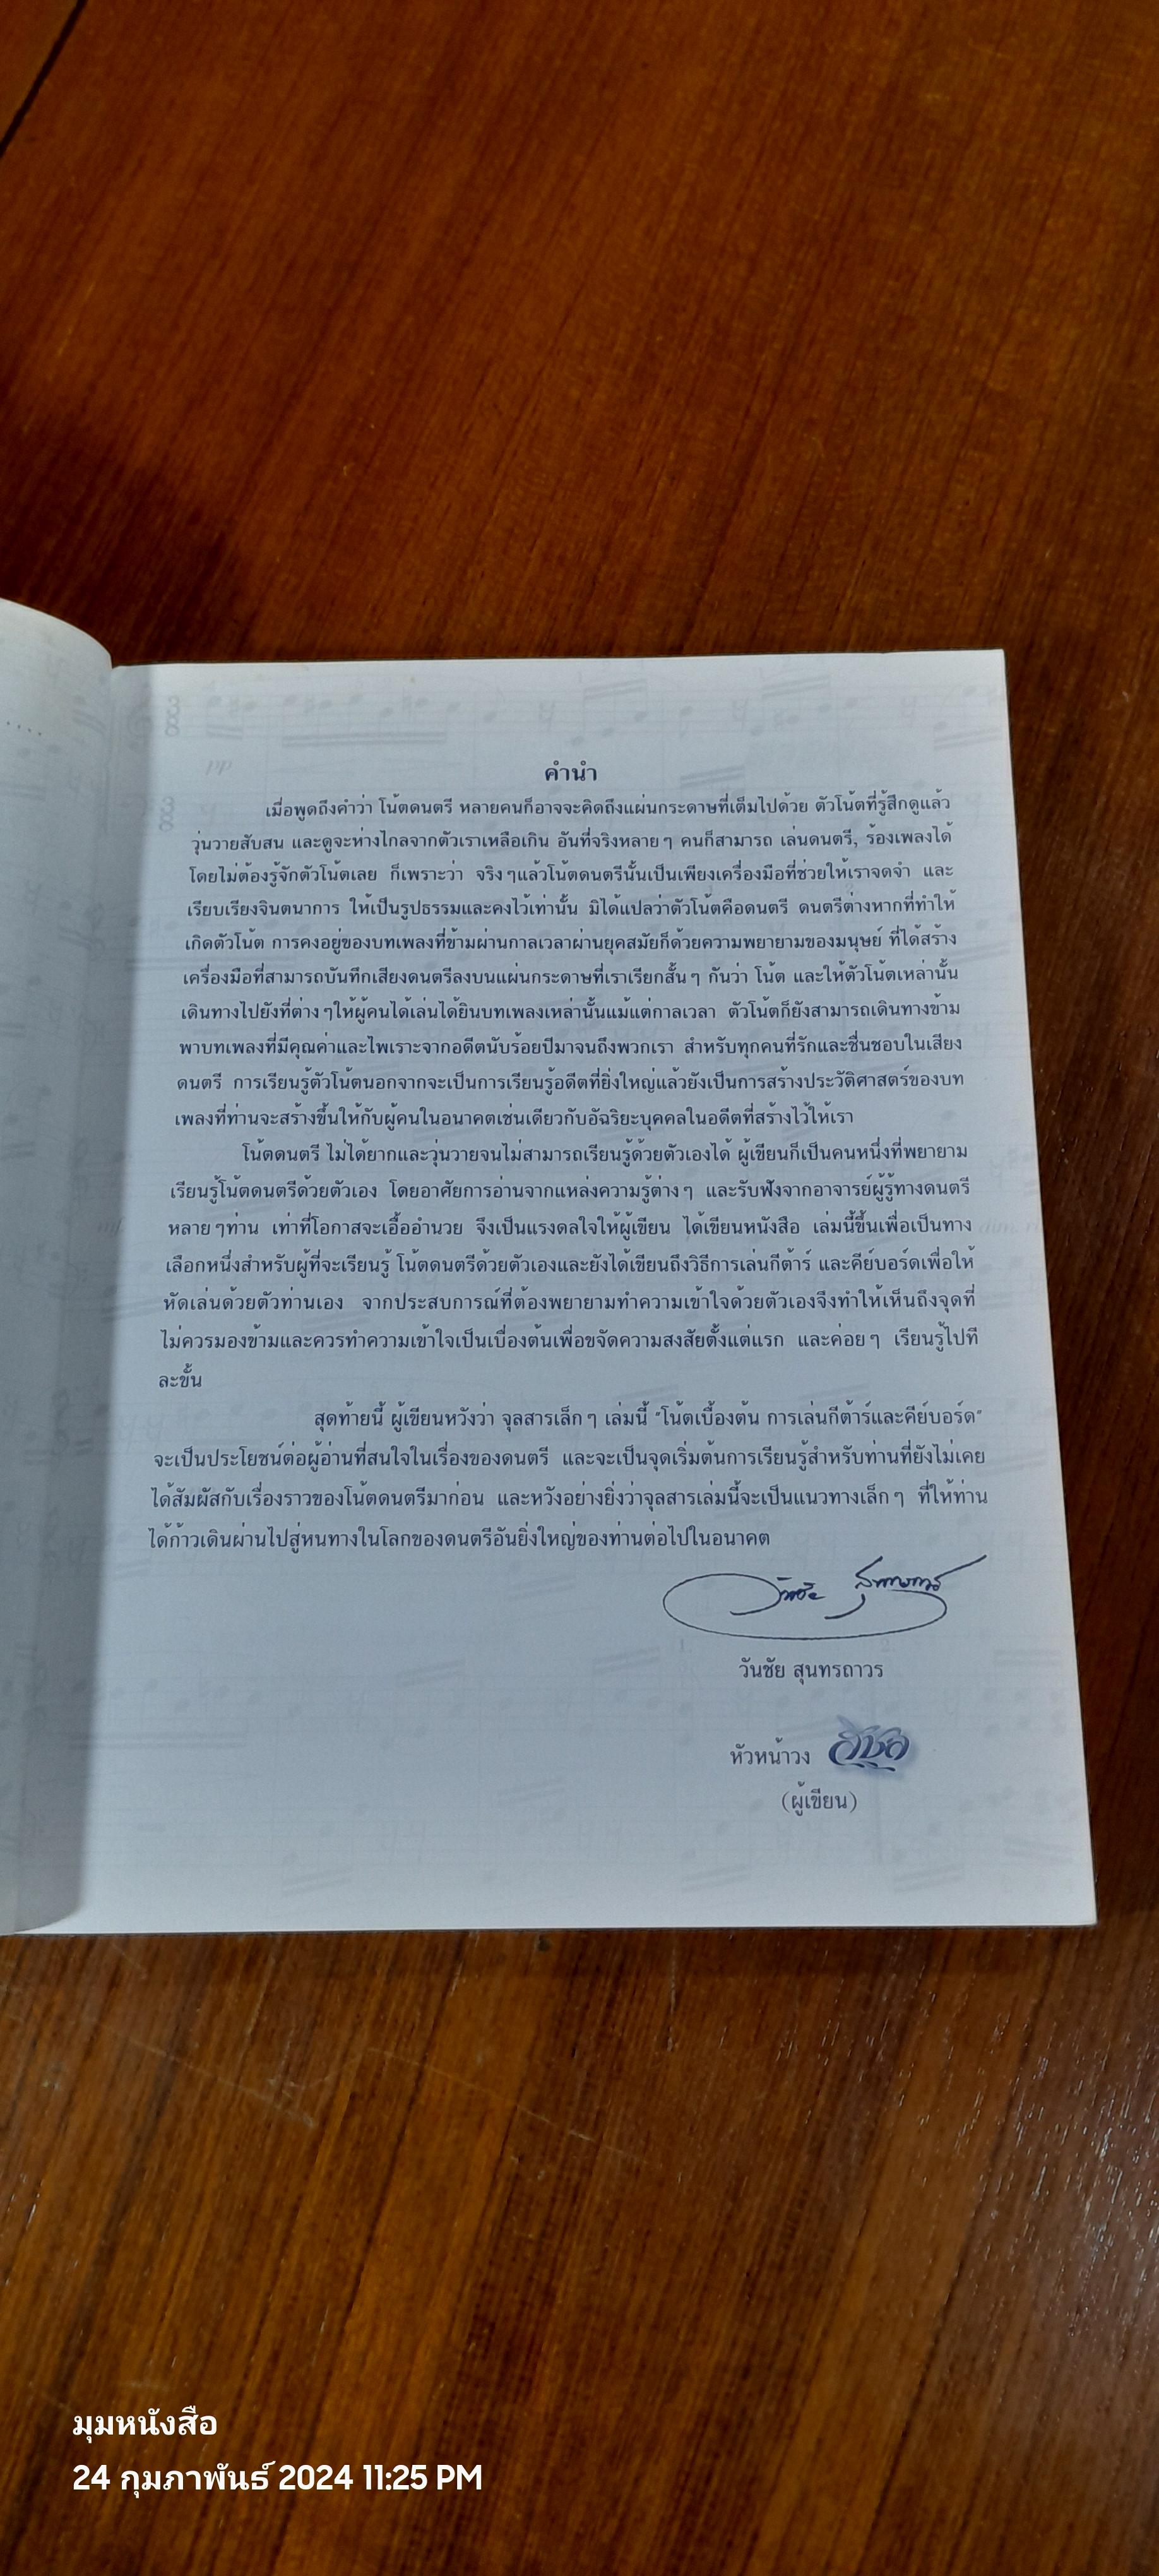 คำนำ
เมื่อพูดถึงคำว่า โน้ตดนตรี หลายคนก็อาจจะคิดถึงแผ่นกระดาษที่เต็มไปด้วย ตัวโน้ตที่รู้สึกดูแล้ว
วุ่นวายสับสน และดูจะห่างไกลจากตัวเราเหลือเกิน อันที่จริงหลายๆ คนก็สามารถ เล่นดนตรี, ร้องเพลงได้
โดยไม่ต้องรู้จักตัวโน้ตเลย ก็เพราะว่า จริงๆแล้วโน้ตดนตรีนั้นเป็นเพียงเครื่องมือที่ช่วยให้เราจดจำ และ
เรียบเรียงจินตนาการ ให้เป็นรูปธรรมและคงไว้เท่านั้น มิได้แปลว่าตัวโน้ตคือดนตรี ดนตรีต่างหากที่ทำให้
เกิดตัวโน้ต การคงอยู่ของบทเพลงที่ข้ามผ่านกาลเวลาผ่านยุคสมัยก็ด้วยความพยายามของมนุษย์ ที่ได้สร้าง
เครื่องมือที่สามารถบันทึกเสียงดนตรีลงบนแผ่นกระดาษที่เราเรียกสั้นๆ กันว่า โน้ต และให้ตัวโน้ตเหล่านั้น
เดินทางไปยังที่ต่างๆให้ผู้คนได้เล่นได้ยินบทเพลงเหล่านั้นแม้แต่กาลเวลา ตัวโน้ตก็ยังสามารถเดินทางข้าม
พาบทเพลงที่มีคุณค่าและไพเราะจากอดีตนับร้อยปีมาจนถึงพวกเรา สำหรับทุกคนที่รักและชื่นชอบในเสียง
ดนตรี การเรียนรู้ตัวโน้ตนอกจากจะเป็นการเรียนรู้อดีตที่ยิ่งใหญ่แล้วยังเป็นการสร้างประวัติศาสตร์ของบท
เพลงที่ท่านจะสร้างขึ้นให้กับผู้คนในอนาคตเช่นเดียวกับอัฉริยะบุคคลในอดีตที่สร้างไว้ให้เรา
โน้ตดนตรี ไม่ได้ยากและวุ่นวายจนไม่สามารถเรียนรู้ด้วยตัวเองได้ ผู้เขียนก็เป็นคนหนึ่งที่พยายาม
เรียนรู้โน้ตดนตรีด้วยตัวเอง โดยอาศัยการอ่านจากแหล่งความรู้ต่างๆ และรับฟังจากอาจารย์ผู้รู้ทางดนตรี
หลายๆท่าน เท่าที่โอกาสจะเอื้ออำนวย จึงเป็นแรงดลใจให้ผู้เขียน ได้เขียนหนังสือ เล่มนี้ขึ้นเพื่อเป็นทาง
เลือกหนึ่งสำหรับผู้ที่จะเรียนรู้ โน้ตดนตรีด้วยตัวเองและยังได้เขียนถึงวิธีการเล่นกีต้าร์ และคีย์บอร์ดเพื่อให้
หัดเล่นด้วยตัวท่านเอง จากประสบการณ์ที่ต้องพยายามทำความเข้าใจด้วยตัวเองจึงทำให้เห็นถึงจุดที่
ไม่ควรมองข้ามและควรทำความเข้าใจเป็นเบื่องต้นเพื่อขจัดความสงสัยตั้งแต่แรก และค่อยๆ เรียนรู้ไปที
ละขั้น
สุดท้ายนี้ ผู้เขียนหวังว่า จุลสารเล็กๆ เล่มนี้ "โน้ตเบื้องต้น การเล่นกีต้าร์และคีย์บอร์ด"
จะเป็นประโยชน์ต่อผู้อ่านที่สนใจในเรื่องของดนตรี และจะเป็นจุดเริ่มต้นการเรียนรู้สำหรับท่านที่ยังไม่เคย
ได้สัมผัสกับเรื่องราวของโน้ตดนตรีมาก่อน และหวังอย่างยิ่งว่าจุลสารเล่มนี้จะเป็นแนวทางเล็กๆ ที่ให้ท่าน
ได้ก้าวเดินผ่านไปสู่หนทางในโลกของดนตรีอันยิ่งใหญ่ของท่านต่อไปในอนาคต
วันชัย สุนทรถาวร
วันชัย สุนทรถาวร
หัวหน้าวง
(ผู้เขียน)
มุมหนังสือ
24 กุมภาพันธ์ 2024 11:25 PM